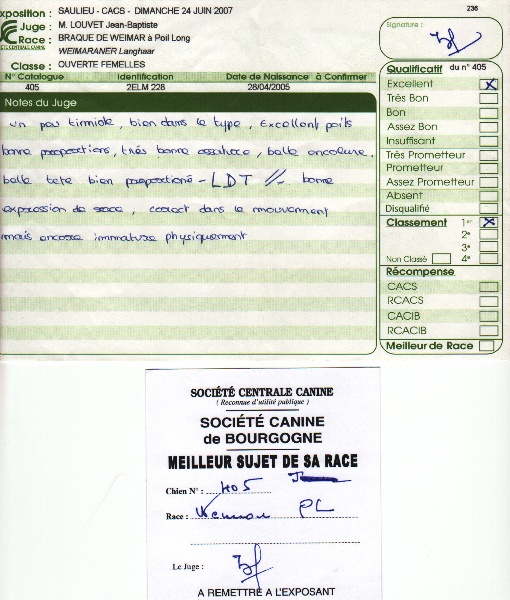 Exposition : SAULIEU - CACS - DIMANCHE 24 JUIN 2007
236
Juge : M. LOUVET Jean-Baptiste
Race : BRAQUE DE WEIMAR à Poil Long
WEIMARANER Langhaar
Classe : OUVERTE FEMELLES
N° Catalogue Identification Date de Naissance à Confirmer
405 2ELM 228 28/04/2005
Notes du Juge
un peu timide, bien dans le type, Excellent poils
bonne proportions, très bonne ossature, belle encolure,
belle tete bien proportionné - LDT // - bonne
expression de race, correct dans le mouvement
mais encore immature physiquement
Signature :
Qualificatif du n° 405
Excellent X
Très Bon
Bon
Assez Bon
Insuffisant
Très Prometteur
Prometteur
Assez Prometteur
Absent
Disqualifié
Classement 1er X
2e
3e
Non Classé 4e
Récompense
CACS
RCACS
CACIB
RCACIB
Meilleur de Race
SOCIÉTÉ CENTRALE CANINE
( Reconnue d'utilité publique )
SOCIÉTÉ CANINE
de BOURGOGNE
MEILLEUR SUJET DE SA RACE
Chien N° : 405
Race : PL
Le Juge :
A REMETTRE A L'EXPOSANT